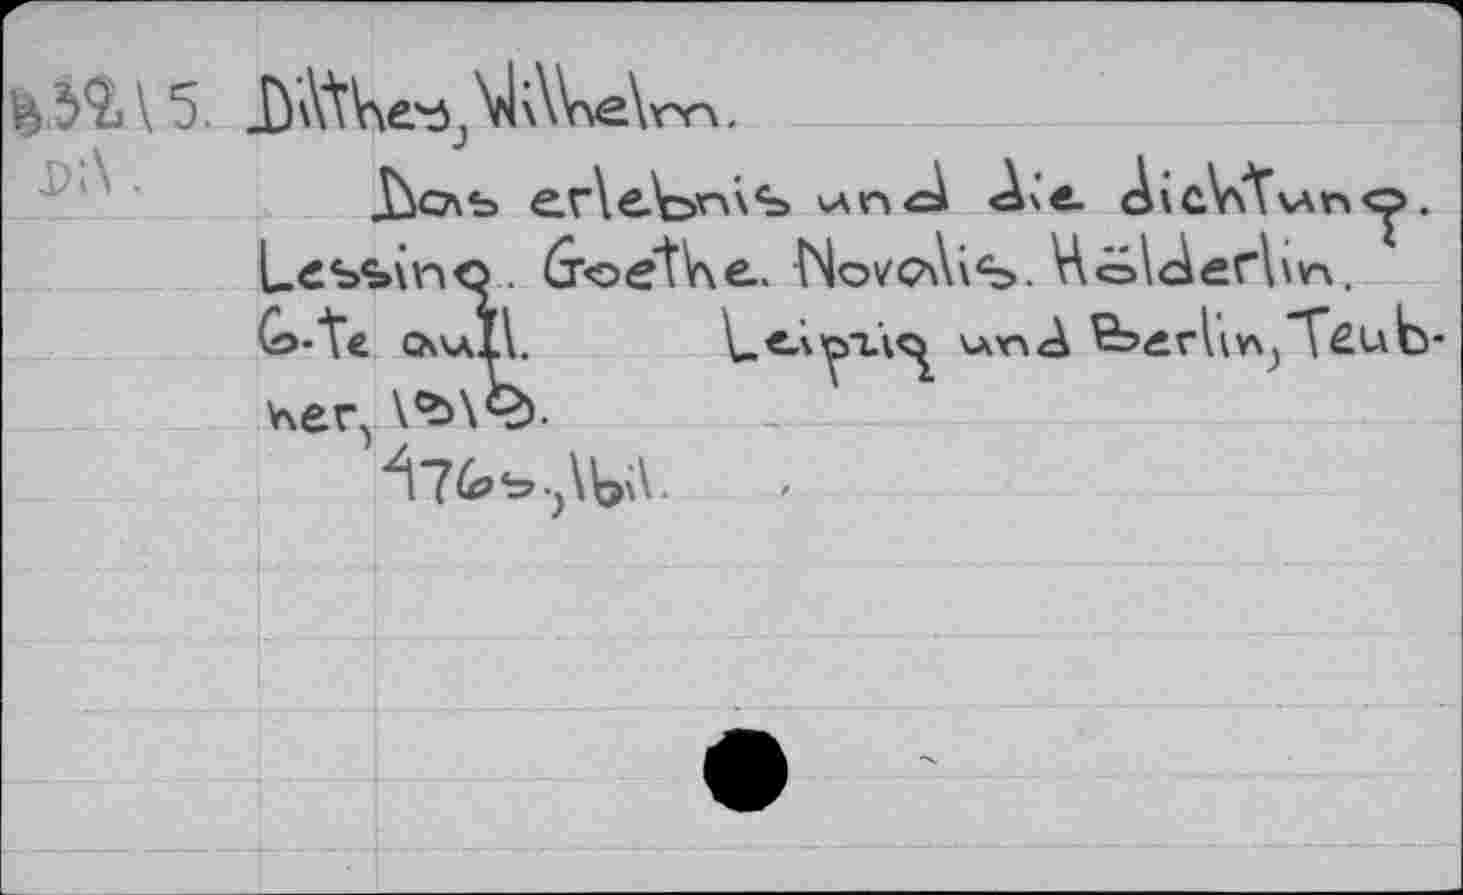 Dilthey, Wilhelm.
Dil.
Das erlebnis und die dichtung.
Lessing. Goethe. Novalis. Hölderlin.
6-te aufl. Leipzig und Berlin, Teub-
ner, 1919.
476s., 1bil.